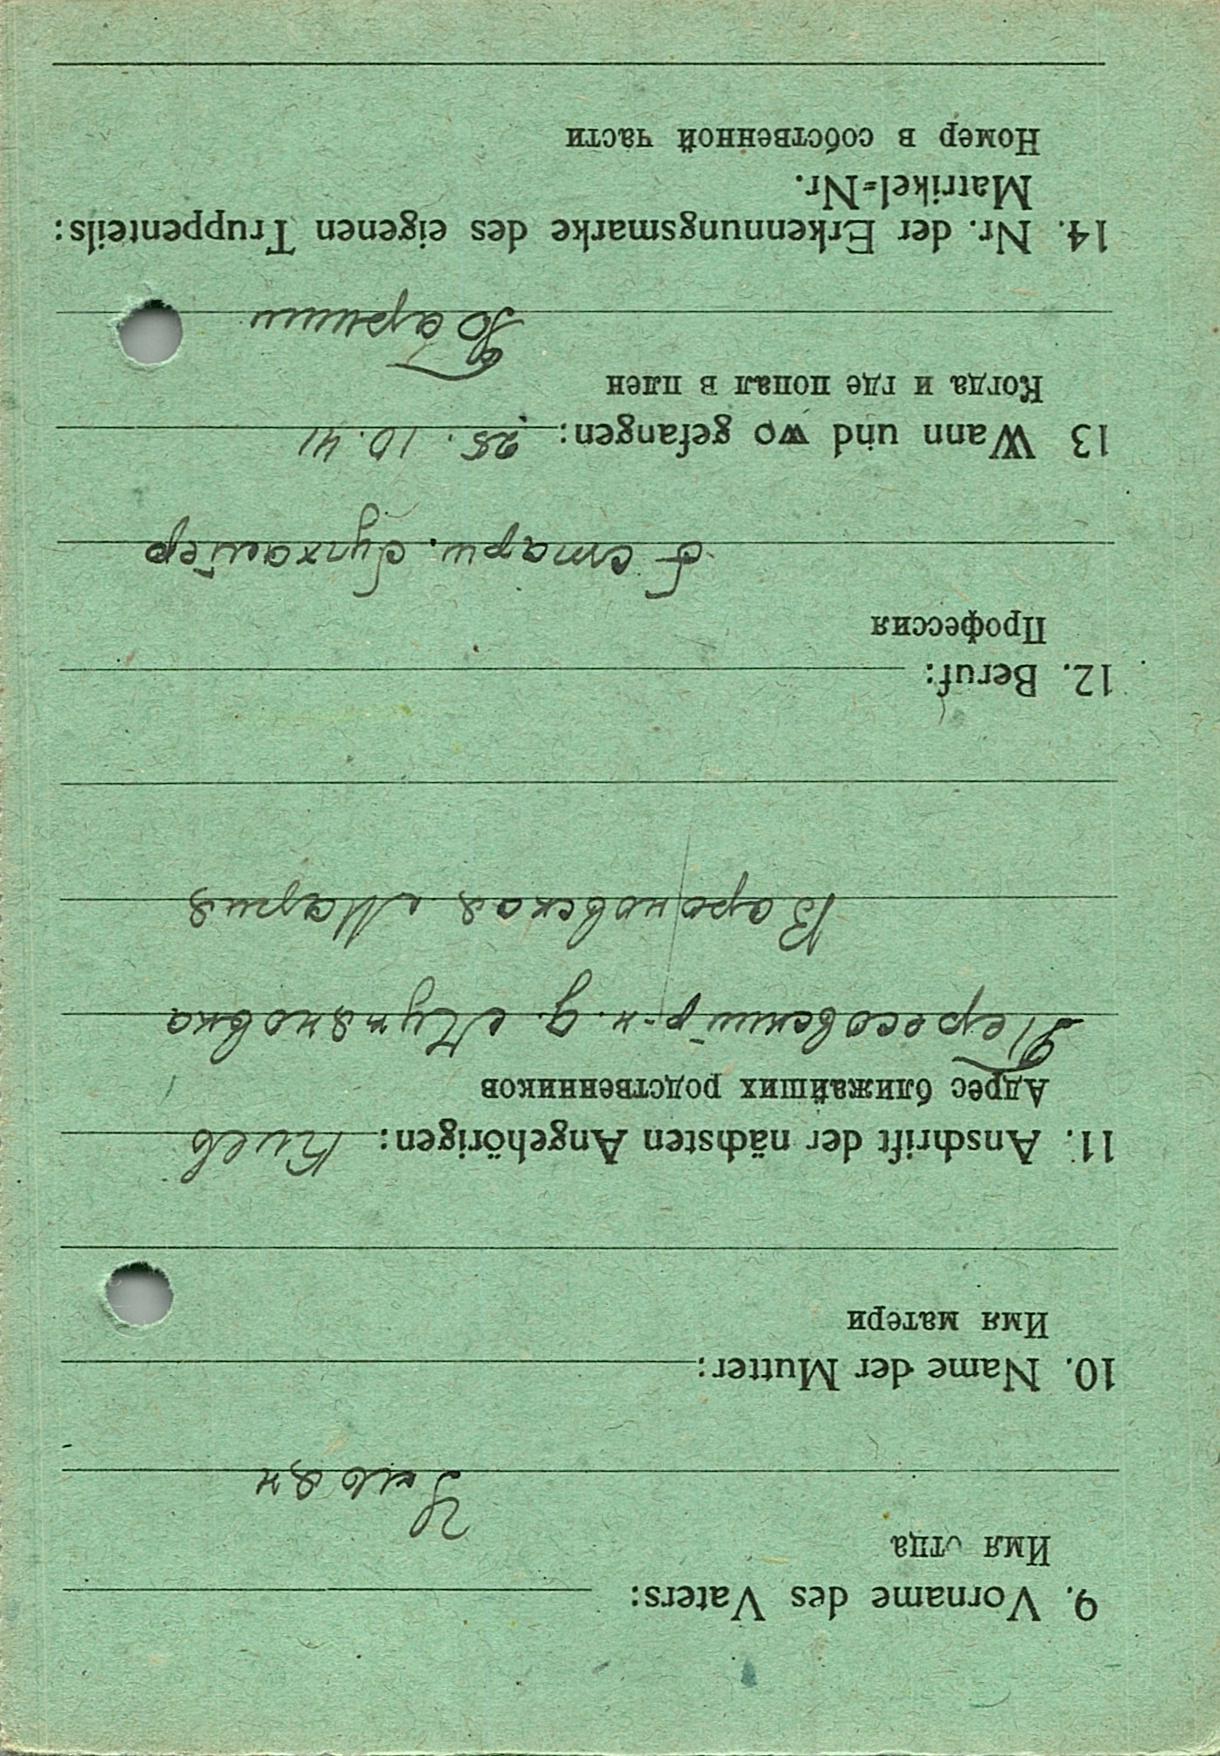 9. Vorname des Vaters:
Имя отца
Иван
10. Name der Mutter:
Имя матери
11. Anschrift der nächsten Angehörigen: Киев
Адрес ближайших родственников
р-н. д.
Мария
12. Beruf:
Профессия
старш. бухгалтер
13 Wann und wo gefangen: 25. 10. 41
Когда и где попал в плен
14. Nr. der Erkennungsmarke des eigenen Truppenteils:
Matrikel=Nr.
Номер в собственной части